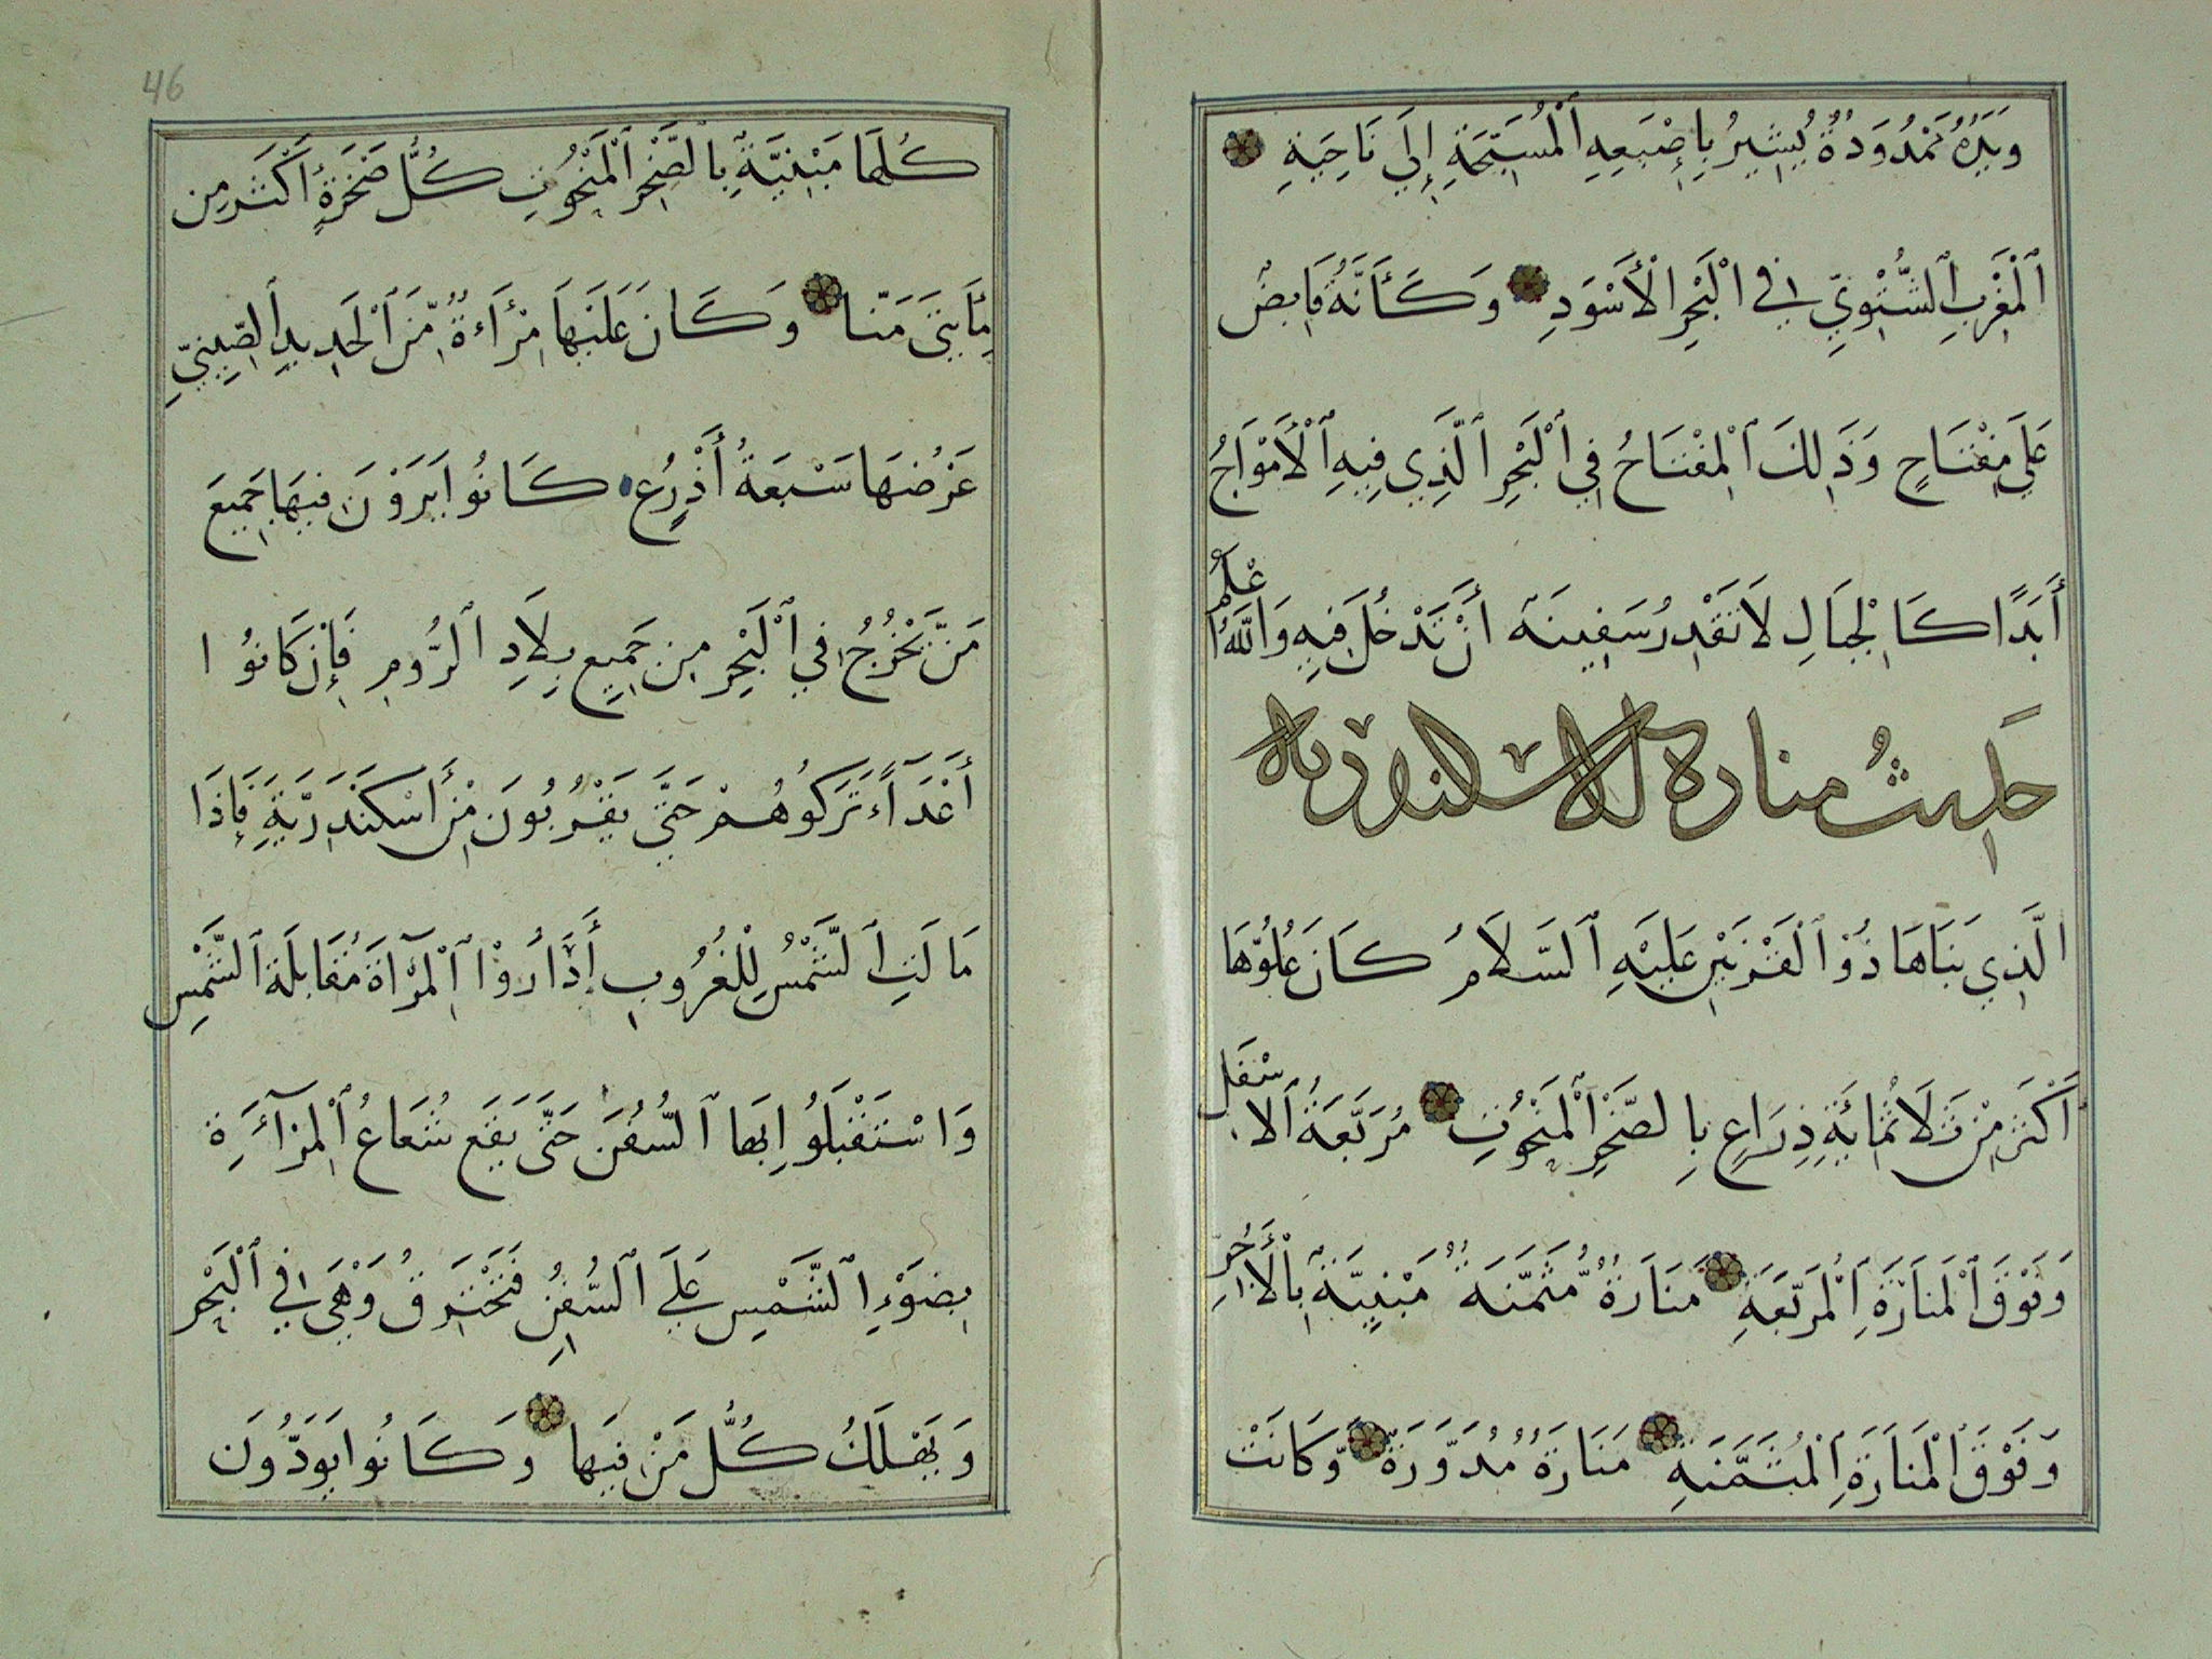 وَيَدُهُ مَمْدُودَةٌ يُشِيرُ بِإِصْبَعِهِ ٱلْمُسَبِّحَةِ إِلَى نَاحِيَةِ
ٱلْمَغْرِبِ ٱلشَّتْوِيِّ فِي ٱلْبَحْرِ ٱلْأَسْوَدِ وَكَأَنَّهُ قَابِضٌ
عَلَى مِفْتَاحٍ وَذَلِكَ ٱلْمِفْتَاحُ فِي ٱلْبَحْرِ ٱلَّذِي فِيهِ ٱلْأَمْوَاجُ
أَبَدًا كَالْجِبَالِ لَا تَقْدِرُ سَفِينَة أَنْ تَدْخُلَ فِيهِ وَاللَّهُ اعْلَمُ
حَدِيثُ منارة الاسكندرية
الَّذِي بَنَاهَا ذُو ٱلْقَرْنَيْنِ عَلَيْهِ ٱلسَّلَامُ كَانَ عُلُوُّهَا
أَكْثَرَ مِنْ ثَلَاثُمِائَةِ ذِرَاعٍ بِالصَّخْرِ ٱلْمَنْحُوتِ مُرَبَّعَةُ ٱلاسْفَلِ
وَفَوْقَ ٱلْمَنَارَةِ ٱلْمُرَبَّعَةِ مَنَارَةٌ مُثَمَّنَةٌ مَبْنِيَّةٌ بِٱلْأَجُرِّ
وَفَوْقَ ٱلْمَنَارَةِ ٱلْمُثَمَّنَةِ مَنَارَةٌ مُدَوَّرَةٌ وَكَانَتْ
46
كُلُّهَا مَبْنِيَّةٌ بِالصَّخْرِ ٱلْمَنْحُوتِ كُلُّ صَخْرَةٍ أَكْثَرَ مِن
مِأَيتَىْ مَنّا وَكَانَ عَلَيْهَا مِرْأَءَةٌ مِّنَ ٱلْحَدِيدِ ٱلصِّينِيِّ
عَرْضُهَا سَبْعَةُ أَذْرُعٍ كَانُوا يَرَوْنَ فِيهَا جَمِيعَ
مَنْ يَخْرُجُ فِي ٱلْبَحْرِ مِن جَمِيعِ بِلَادِ ٱلرُّومِ فَإِنْ كَانُوا
أَعْدَآءً تَرَكُوهُمْ حَتَّى يَقْرُبُونَ مِنْ أَسْكَنْدَرِيَّةِ فَإِذَا
مَالَتِ ٱلشَّمْسُ لِلْغُرُوبِ أَدَارُوْا ٱلْمِرْآةَ مُقَابَلَة ٱلشَّمْسِ
وَاسْتَقْبَلُوا بِهَا ٱلسُّفُنَ حَتَّى يَقَع شُعَاعُ ٱلْمِرْآءَةِ
بِضَوْءِ ٱلشَّمْسِ عَلَى ٱلسُّفُنِ فَتَحْتَرِقُ وَهْيَ فِي ٱلْبَحْرِ
وَيَهْلَكُ كُلُّ مَنْ فِيهَا وَكَانُوا يَوَدُّونَ